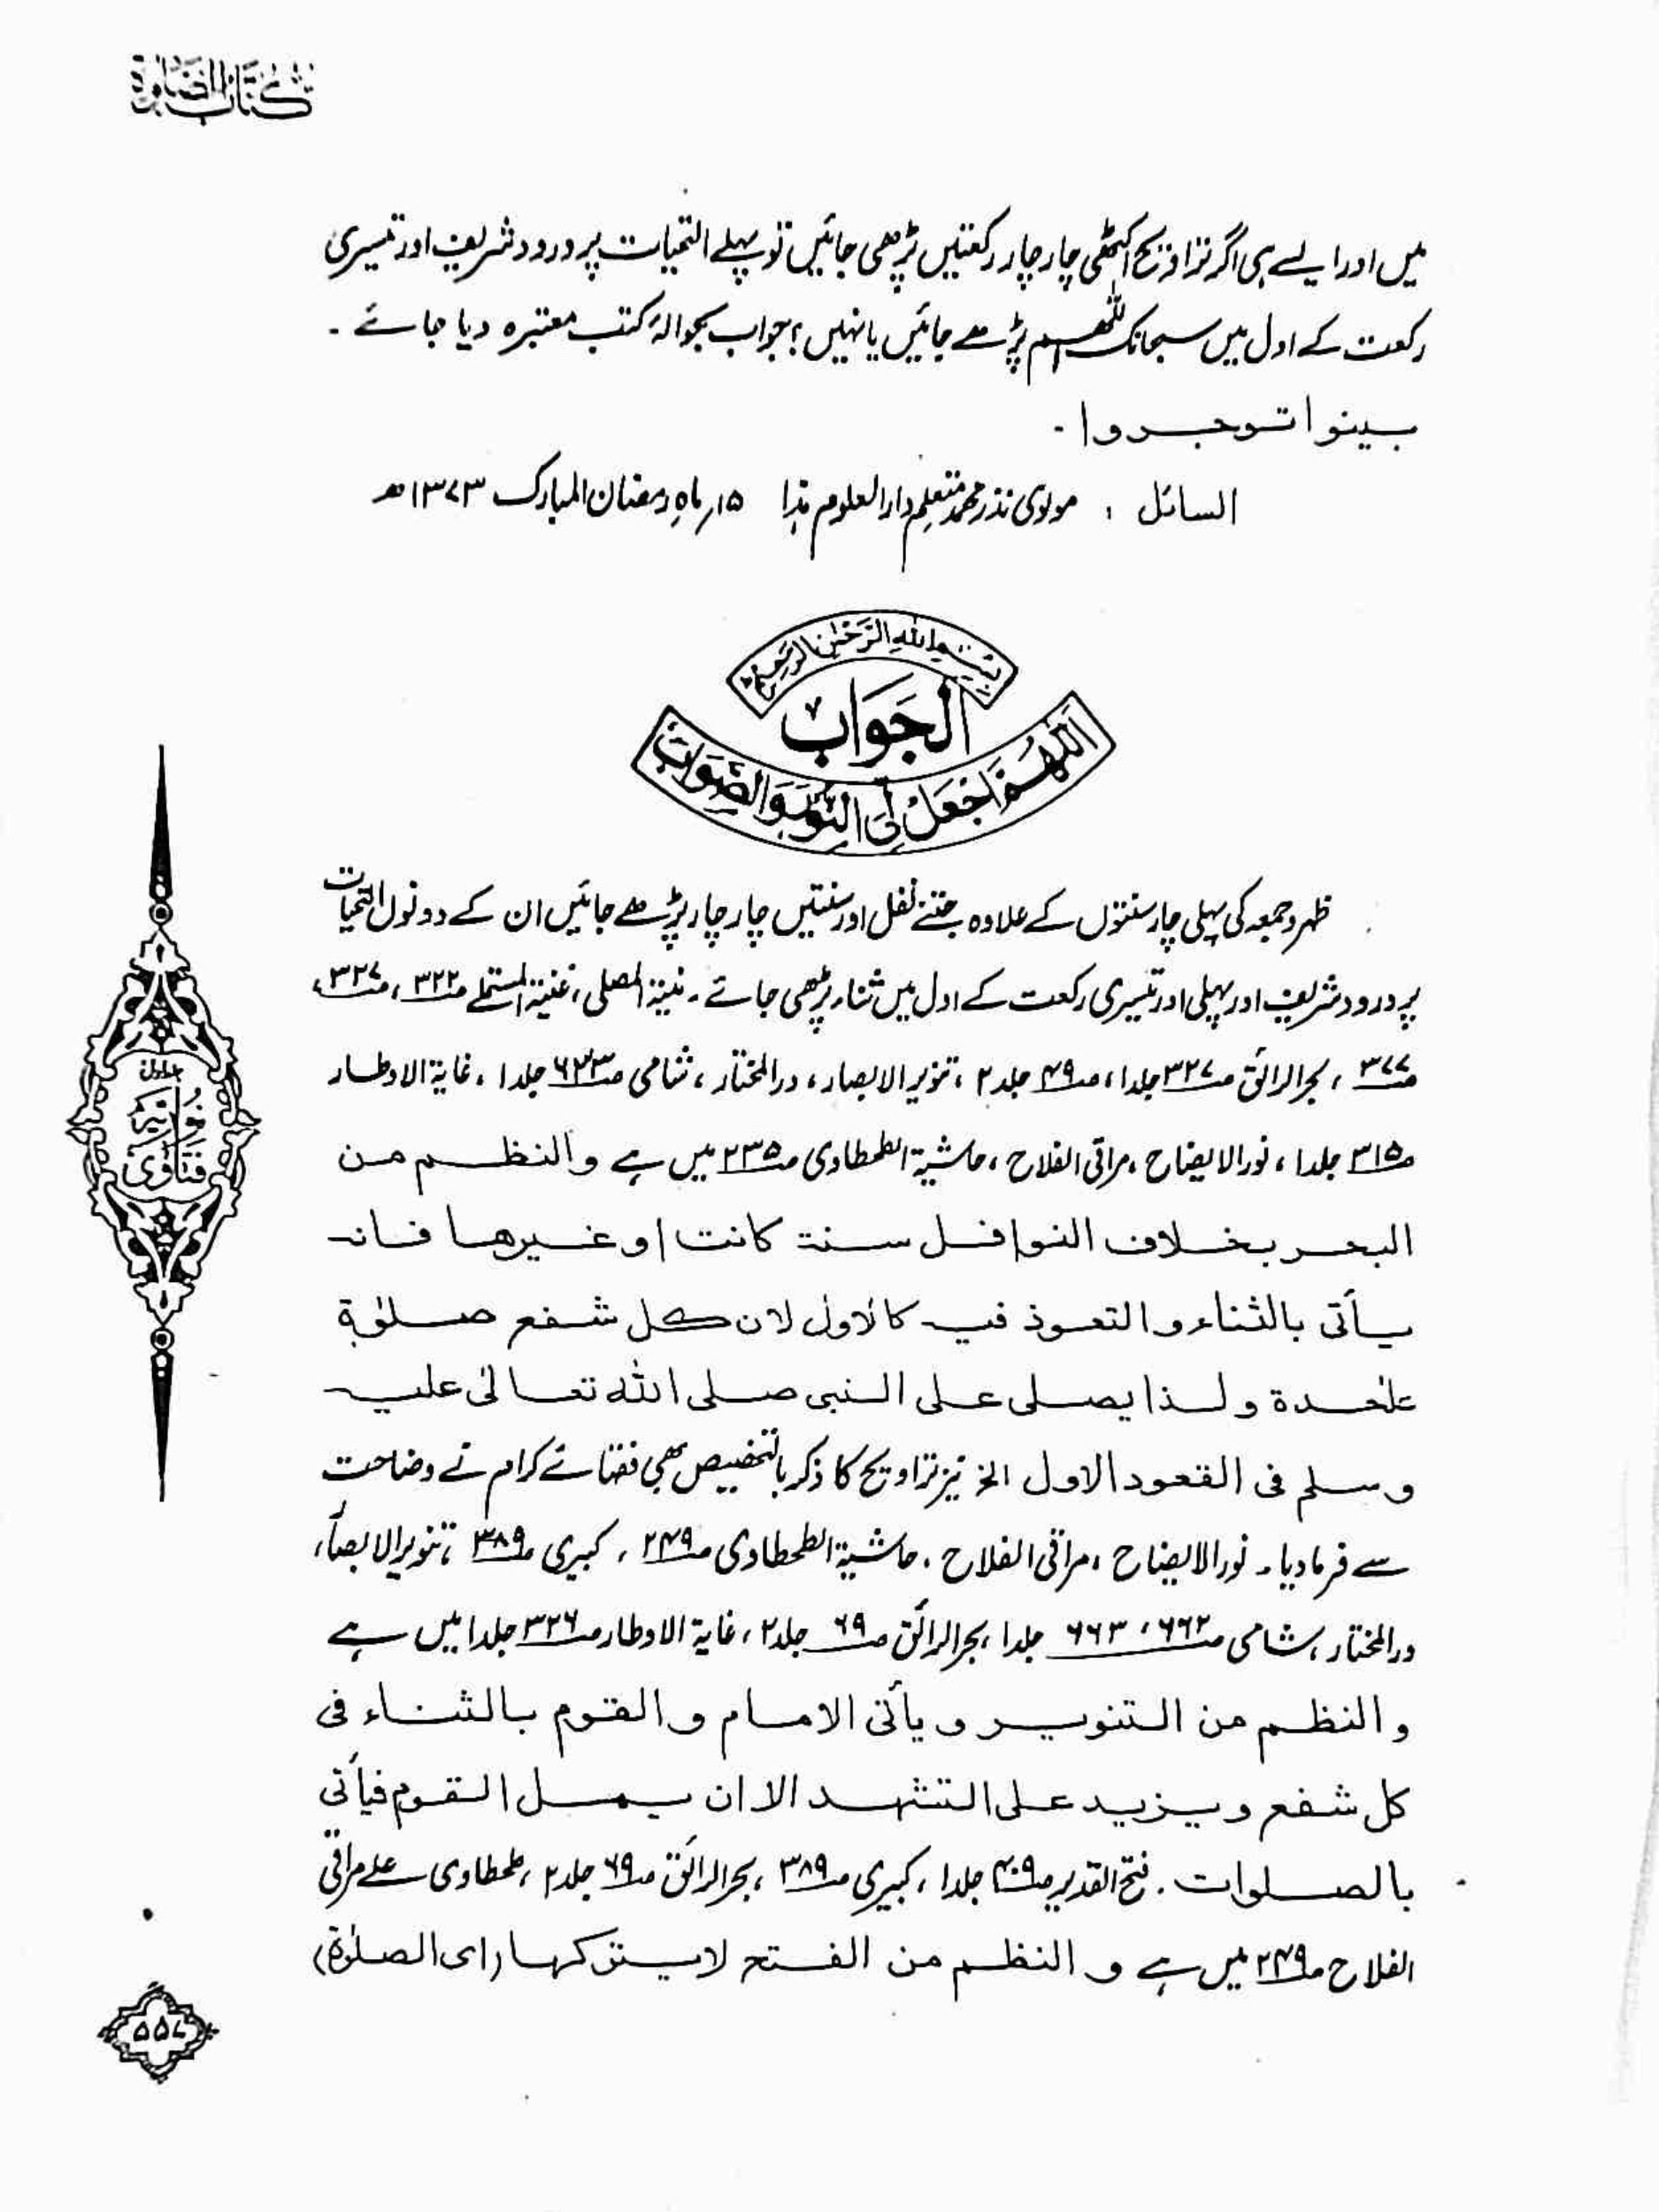 کتاب الصلوٰة
میں اور ایسے ہی اگر تراویح اکٹھی چار چار رکعتیں پڑھی جائیں تو پہلے التحیات پر درود شریف اور تیسری
رکعت کے اول میں سبحانک اللھم پڑھے جائیں یا نہیں؟ جواب بحوالۂ کتب معتبرہ دیا جائے ۔
بینوا توجروا ۔
السائل : مولوی نذر محمد متعلم دار العلوم ہذا ۱۵؍ ماہِ رمضان المبارک ۱۳۷۳ھ
بِسْمِ اللهِ الرَّحْمٰنِ الرَّحِيْمِ
الجَوَابُ
اَللّٰهُمَّ اجْعَلْ لِيَ النُّوْرَ وَالصَّوَابَ
ظہر و جمعہ کی پہلی چار سنتوں کے علاوہ جتنے نفل اور سنتیں چار چار پڑھے جائیں ان کے دونوں التحیات
پر درود شریف اور پہلی اور تیسری رکعت کے اول میں ثناء پڑھی جائے ۔ منیۃ المصلی ، غنیۃ المستملے صـ۳۲۲ ، صـ۳۲۷ ،
صـ۳۷۷ ، بحر الرائق صـ۳۲۷ جلد ۱ ، صـ۴۹ جلد ۲ ، تنویر الابصار ، در المختار ، شامی صـ۶۳۳ جلد ۱ ، غایۃ الاوطار
صـ۳۱۵ جلد ۱ ، نور الایضاح ، مراقی الفلاح ، حاشیۃ الطحطاوی صـ۲۳۵ میں ہے والنظم من
البحر بخلاف النوافل سنة كانت او غيرها فانه
يأتى بالثناء والتعوذ فيه كالاول لان كل شفع صلوٰة
علٰحدة ولذا يصلى على النبى صلى الله تعالىٰ عليه
وسلم فى القعود الاول الخ نیز تراویح کا ذکر بالتخصیص بھی فقہائے کرام نے وضاحت
سے فرما دیا ۔ نور الایضاح ، مراقی الفلاح ، حاشیۃ الطحطاوی صـ۲۴۹ ، کبیری صـ۳۸۹ ، تنویر الابصار ،
در المختار ، شامی صـ۶۶۲ ، ۶۶۳ جلد ۱ ، بحر الرائق صـ۶۹ جلد ۲ ، غایۃ الاوطار صـ۳۲۶ جلد ۱ میں ہے
والنظم من التنوير و يأتى الامام والقوم بالثناء فى
كل شفع ويزيد على التشهد الا ان يمل القوم فيأتى
بالصلوات ۔ فتح القدیر صـ۴۰۹ جلد ۱ ، کبیری صـ۳۸۹ ، بحر الرائق صـ۶۹ جلد ۲ ، طحطاوی علے مراقی
الفلاح صـ۲۴۹ میں ہے والنظم من الفتح لا يتركها (اى الصلوٰة)
جلد اول
فتاوی نوریہ
۵۵۷